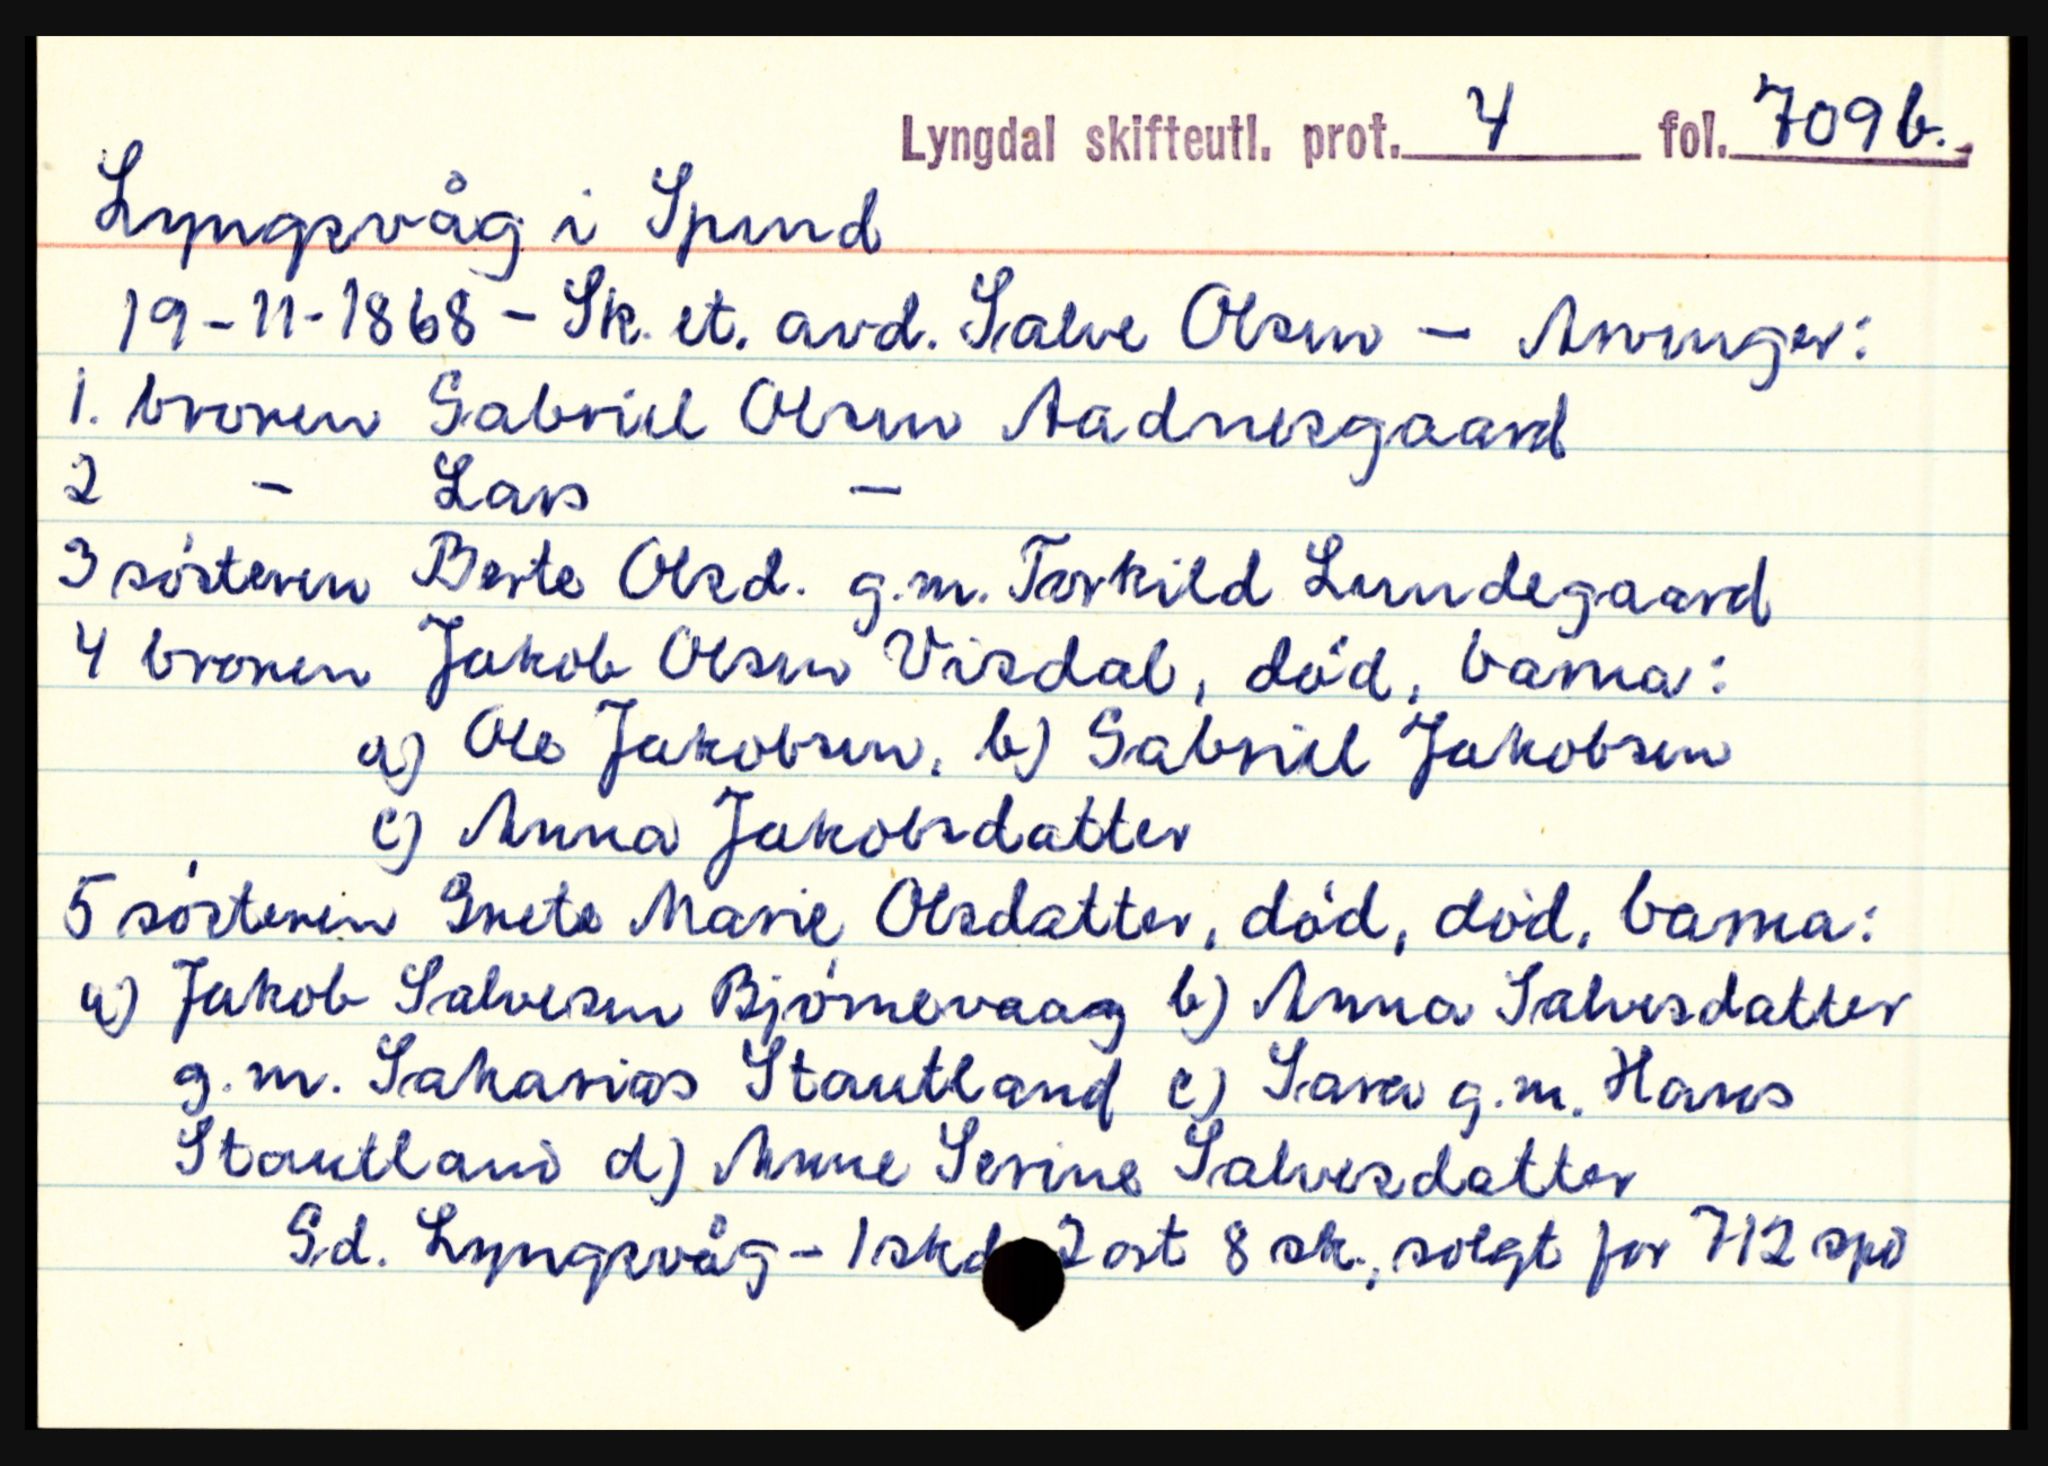 Lyngdal skifteutl. prot. 4 fol. 709b.
Lyngsvåg i Spind
19-11-1868 - Sk. et. avd. Salve Olsen - Arvinger:
1. broren Gabriel Olsen Aadnesgaard
2 - Lars -
3 søsteren Berte Olsd. g.m. Torkild Lundegaard
4 broren Jakob Olsen Visdal, død, barna:
a) Ole Jakobsen, b) Gabriel Jakobsen
c) Anna Jakobsdatter
5 søsteren Grete Marie Olsdatter, død, død, barna:
a) Jakob Salvesen Bjørnevaag b) Anna Salvesdatter
g.m. Sakarias Stautland c) Sara g.m. Hans
Stautland d) Anne Serine Salvesdatter
Gd. Lyngsvåg - 1 skd 2 ort 8 sk., solgt for 712 spd